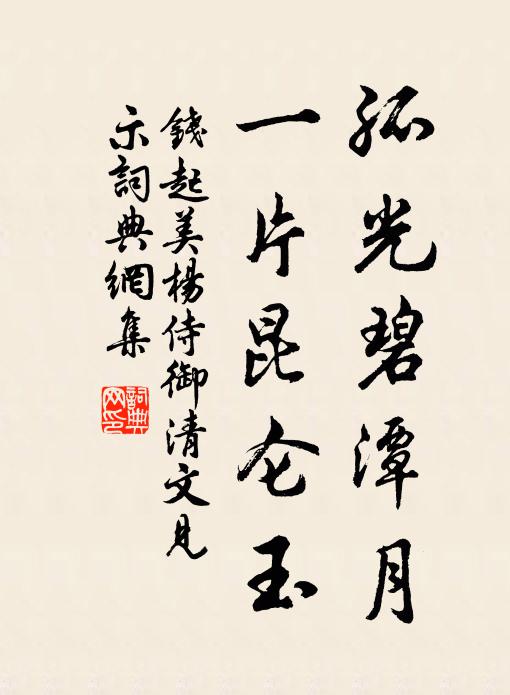 孤光碧潭月
一片昆仑玉
錢起美楊侍御清文見
示詞典網集
詞典
网印